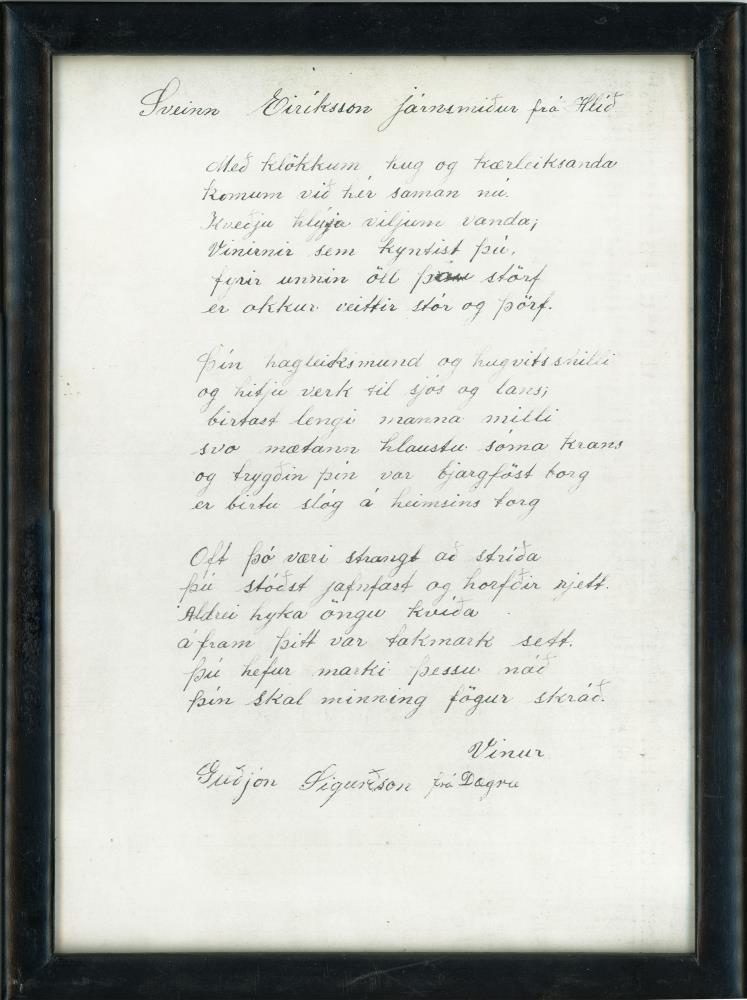 Sveinn Eiríksson járnsmiður frá Hlíð
Með klökkum hug og kærleiksanda
komum við hér saman nú.
Kveðju hlýja viljum vanda;
Vinirnir sem kyntist þú,
fyrir unnin öll þau störf
er okkur veittir stór og þörf.
Þín hagleiksmund og hugvitssnilli
og hitju verk til sjós og lans;
birtast lengi manna milli
svo mætann hlaustu sóma krans
og trygðin þín var bjargföst borg
er birtu slóg á heimsins torg
Oft þó væri strangt að stríða
þú stóðst jafnfast og horfðir rjett.
Aldrei hyka öngu kvíða
áfram þitt var takmark sett.
þú hefur marki þessu náð
þín skal minning fögur skráð.
Vinur
Guðjón Sigurðsson frá Dægru